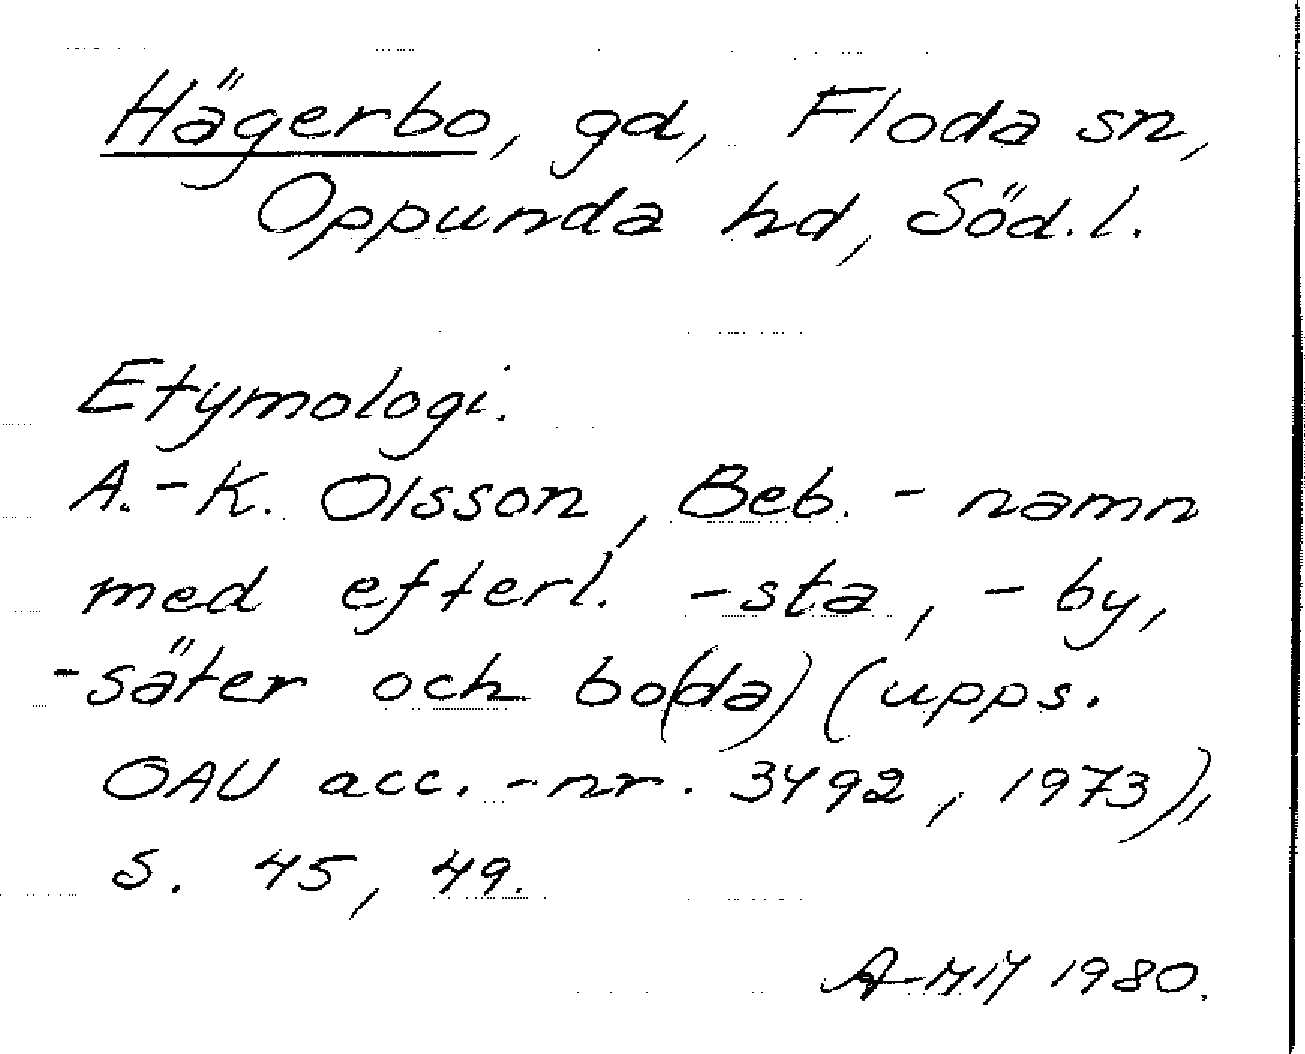 Hägerbo, gd, Floda sn,
Oppunda hd, Söd.l.
Etymologi.
A.-K. Olsson, Beb.-namn
med efterl. -sta, -by,
-säter och bo(da) (upps.
OAU acc.-nr. 3492, 1973),
s. 45, 49.
A-MM 1980.